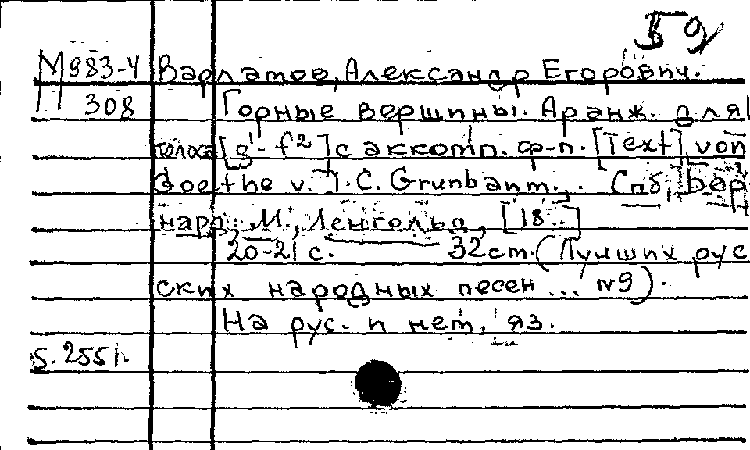 59
М983-4 Варламов, Александр Егорович.
308 Горные вершины. Аранж. для
голоса [g¹-f²] с аккомп. ф-п. [Text] von
Goethe v. J. C. Grunbaum. Спб, Бер
нард, М., Ленгольд, [18..]
20-21 с. 32 cm. (Лучших рус
ских народных песен... №9).
На рус. и нем. яз.